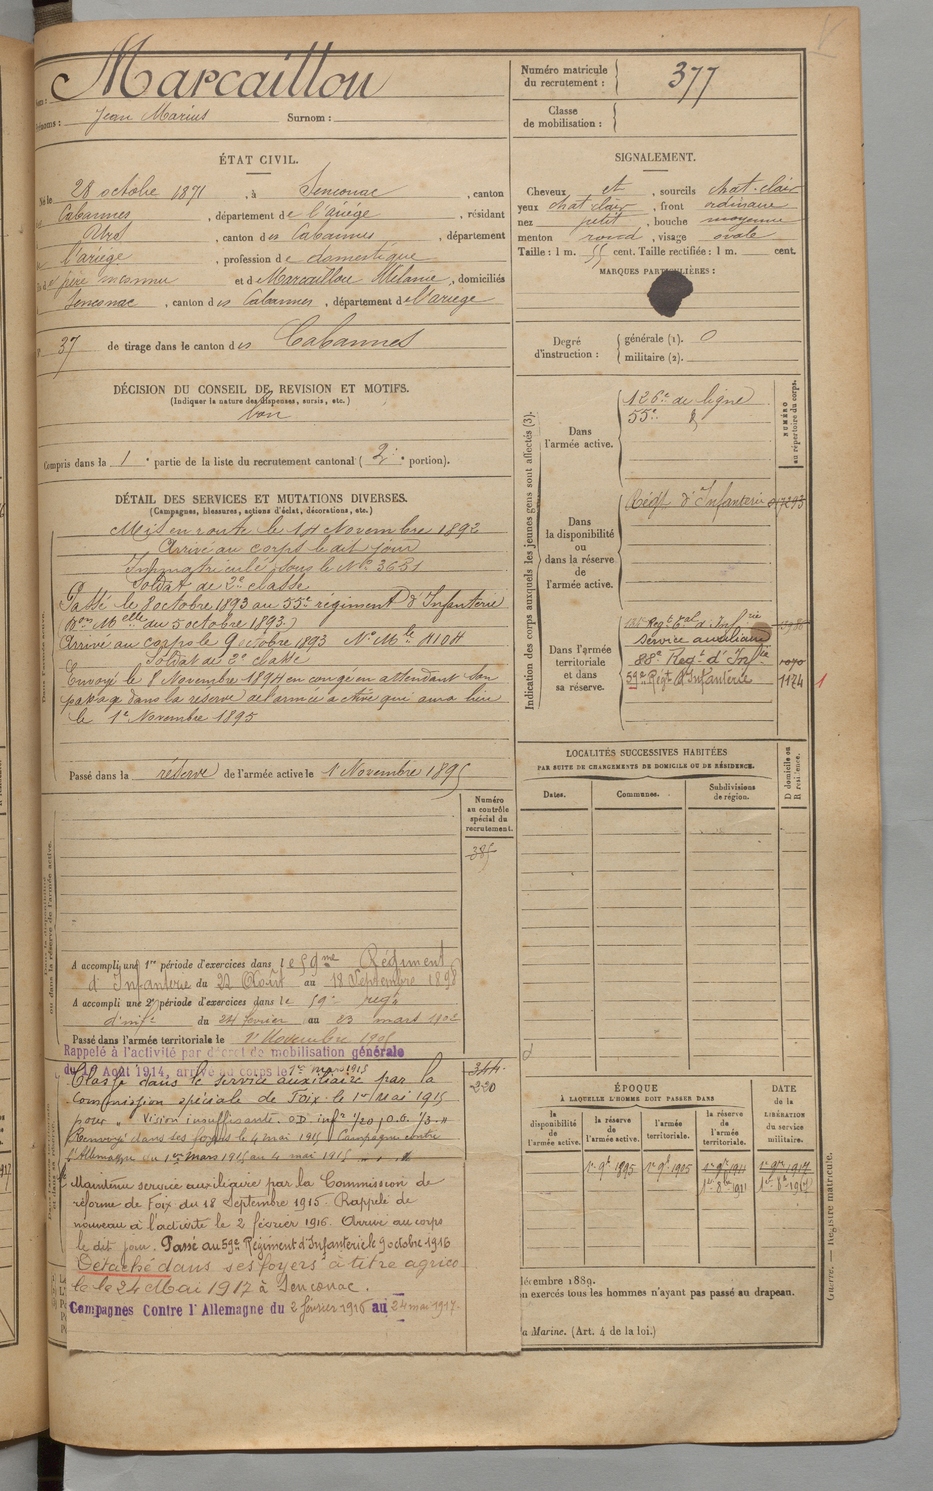 Marcaillou
Prénoms : Jean Marius Surnom :
Numéro matricule du recrutement : 377
Classe de mobilisation :
ÉTAT CIVIL.
Né le 28 octobre 1871, à Senconac, canton
Cabannes, département de l'ariège, résidant
Urs, canton des Cabannes, département
l'ariège, profession de domestique
père inconnu et de Marcaillou Mélanie, domiciliés
Senconac, canton des Cabannes, département de l'ariège
37 de tirage dans le canton des Cabannes
SIGNALEMENT.
Cheveux et, sourcils chat. clair
yeux chat clair, front ordinaire
nez petit, bouche moyenne
menton rond, visage ovale
Taille : 1 m. 55 cent. Taille rectifiée : 1 m. cent.
MARQUES PARTICULIÈRES :
Degré d'instruction : générale (1). 0
militaire (2).
DÉCISION DU CONSEIL DE REVISION ET MOTIFS.
(Indiquer la nature des dispenses, sursis, etc.)
bon
Compris dans la 1e partie de la liste du recrutement cantonal (2e portion).
DÉTAIL DES SERVICES ET MUTATIONS DIVERSES.
(Campagnes, blessures, actions d'éclat, décorations, etc.)
Mis en route le 14 Novembre 1892
Arrivé au corps le dit jour
Immatriculé sous le No 3631
Soldat de 2e classe
Passé le 8 octobre 1893 au 55e régiment d'Infanterie
du 5 octobre 1893)
Arrivé au corps le 9 octobre 1893 No Mle 4104
Soldat de 2e classe
Envoyé le 8 Novembre 1894 en congé en attendant son
passage dans la réserve de l'armée active qui aura lieu
le 1er Novembre 1895
Passé dans la réserve de l'armée active le 1 Novembre 1895
Numéro au contrôle spécial du recrutement.
385
A accompli une 1re période d'exercices dans le 59me Régiment
d'Infanterie du 22 Août au 18 Septembre 1898
A accompli une 2e période d'exercices dans le 59e regt
d'infie du 24 février au 23 mars 1902
Passé dans l'armée territoriale le 1er Novembre 1905
Rappelé à l'activité par décret de mobilisation générale
du 1er Août 1914, arrivé au corps le 1er mars 1915
344
220
Classé dans le service auxiliaire par la
Commission spéciale de Foix le 1er Mai 1915
pour " Vision insuffisante. O.D. infre 1/20, O.G. 1/3 "
Renvoyé dans ses foyers le 4 mai 1915 Campagne contre
l'Allemagne du 1er mars 1915 au 4 mai 1915
Maintenu service auxiliaire par la Commission de
réforme de Foix du 18 Septembre 1915. Rappelé de
nouveau à l'activité le 2 février 1916. Arrivé au corps
le dit jour. Passé au 59e Régiment d'Infanterie le 9 octobre 1916
Détaché dans ses foyers à titre agrico
le le 24 Mai 1917 à Senconac.
Campagnes Contre l'Allemagne du 2 février 1916 au 24 mai 1917
Indication des corps auxquels les jeunes gens sont affectés (3).
NUMÉRO au répertoire du corps.
Dans l'armée active.
126e de ligne
55e
Dans la disponibilité ou dans la réserve de l'armée active.
Régt d'Infanterie
Dans l'armée territoriale et dans sa réserve.
Regt d'Infie
Service auxiliaire
88e Regt d'Infie 1070
59e Régt d'Infanterie 1174 1
LOCALITÉS SUCCESSIVES HABITÉES
PAR SUITE DE CHANGEMENTS DE DOMICILE OU DE RÉSIDENCE.
Dates. Communes. Subdivisions de région. D domicile ou R résidence.
ÉPOQUE
À LAQUELLE L'HOMME DOIT PASSER DANS
DATE de la LIBÉRATION du service militaire.
la disponibilité de l'armée active. la réserve de l'armée active. l'armée territoriale. la réserve de l'armée territoriale.
1er 9bre 1895 1er 9bre 1905 1er 9bre 1911 1er 9bre 1917
1er 8bre 1911 1er 8bre 1917
décembre 1889.
n exercés tous les hommes n'ayant pas passé au drapeau.
a Marine. (Art. 4 de la loi.)
Guerre. — Registre matricule.